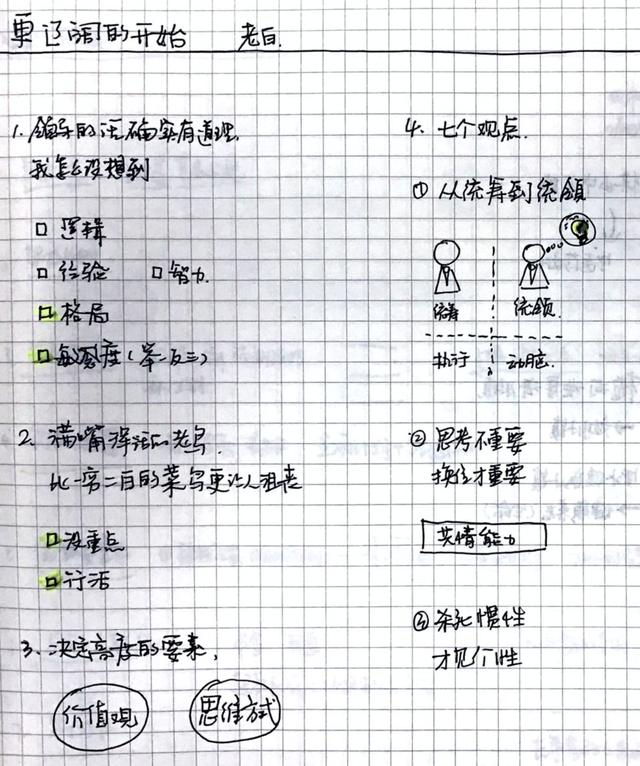 更辽阔的开始 老白.
1. 领导的话确实有道理,
我怎么没想到
□ 逻辑
□ 经验 □ 智力
□ 格局
□ 敏感度(举一反三)
2. 满嘴浑话的老鸟.
比一穷二白的菜鸟更让人沮丧
□ 没重点
□ 行活
3. 决定高度的要素,
价值观 思维方式
4. 七个观点.
① 从统筹到统领
统筹 统领
执行 动脑
② 思考不重要
换位才重要
共情能力
③ 杀死惯性
才见个性